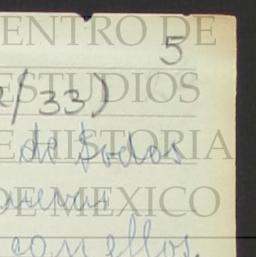 5
/33)
de todos
con ellos.
CENTRO DE
ESTUDIOS
DE HISTORIA
DE MEXICO